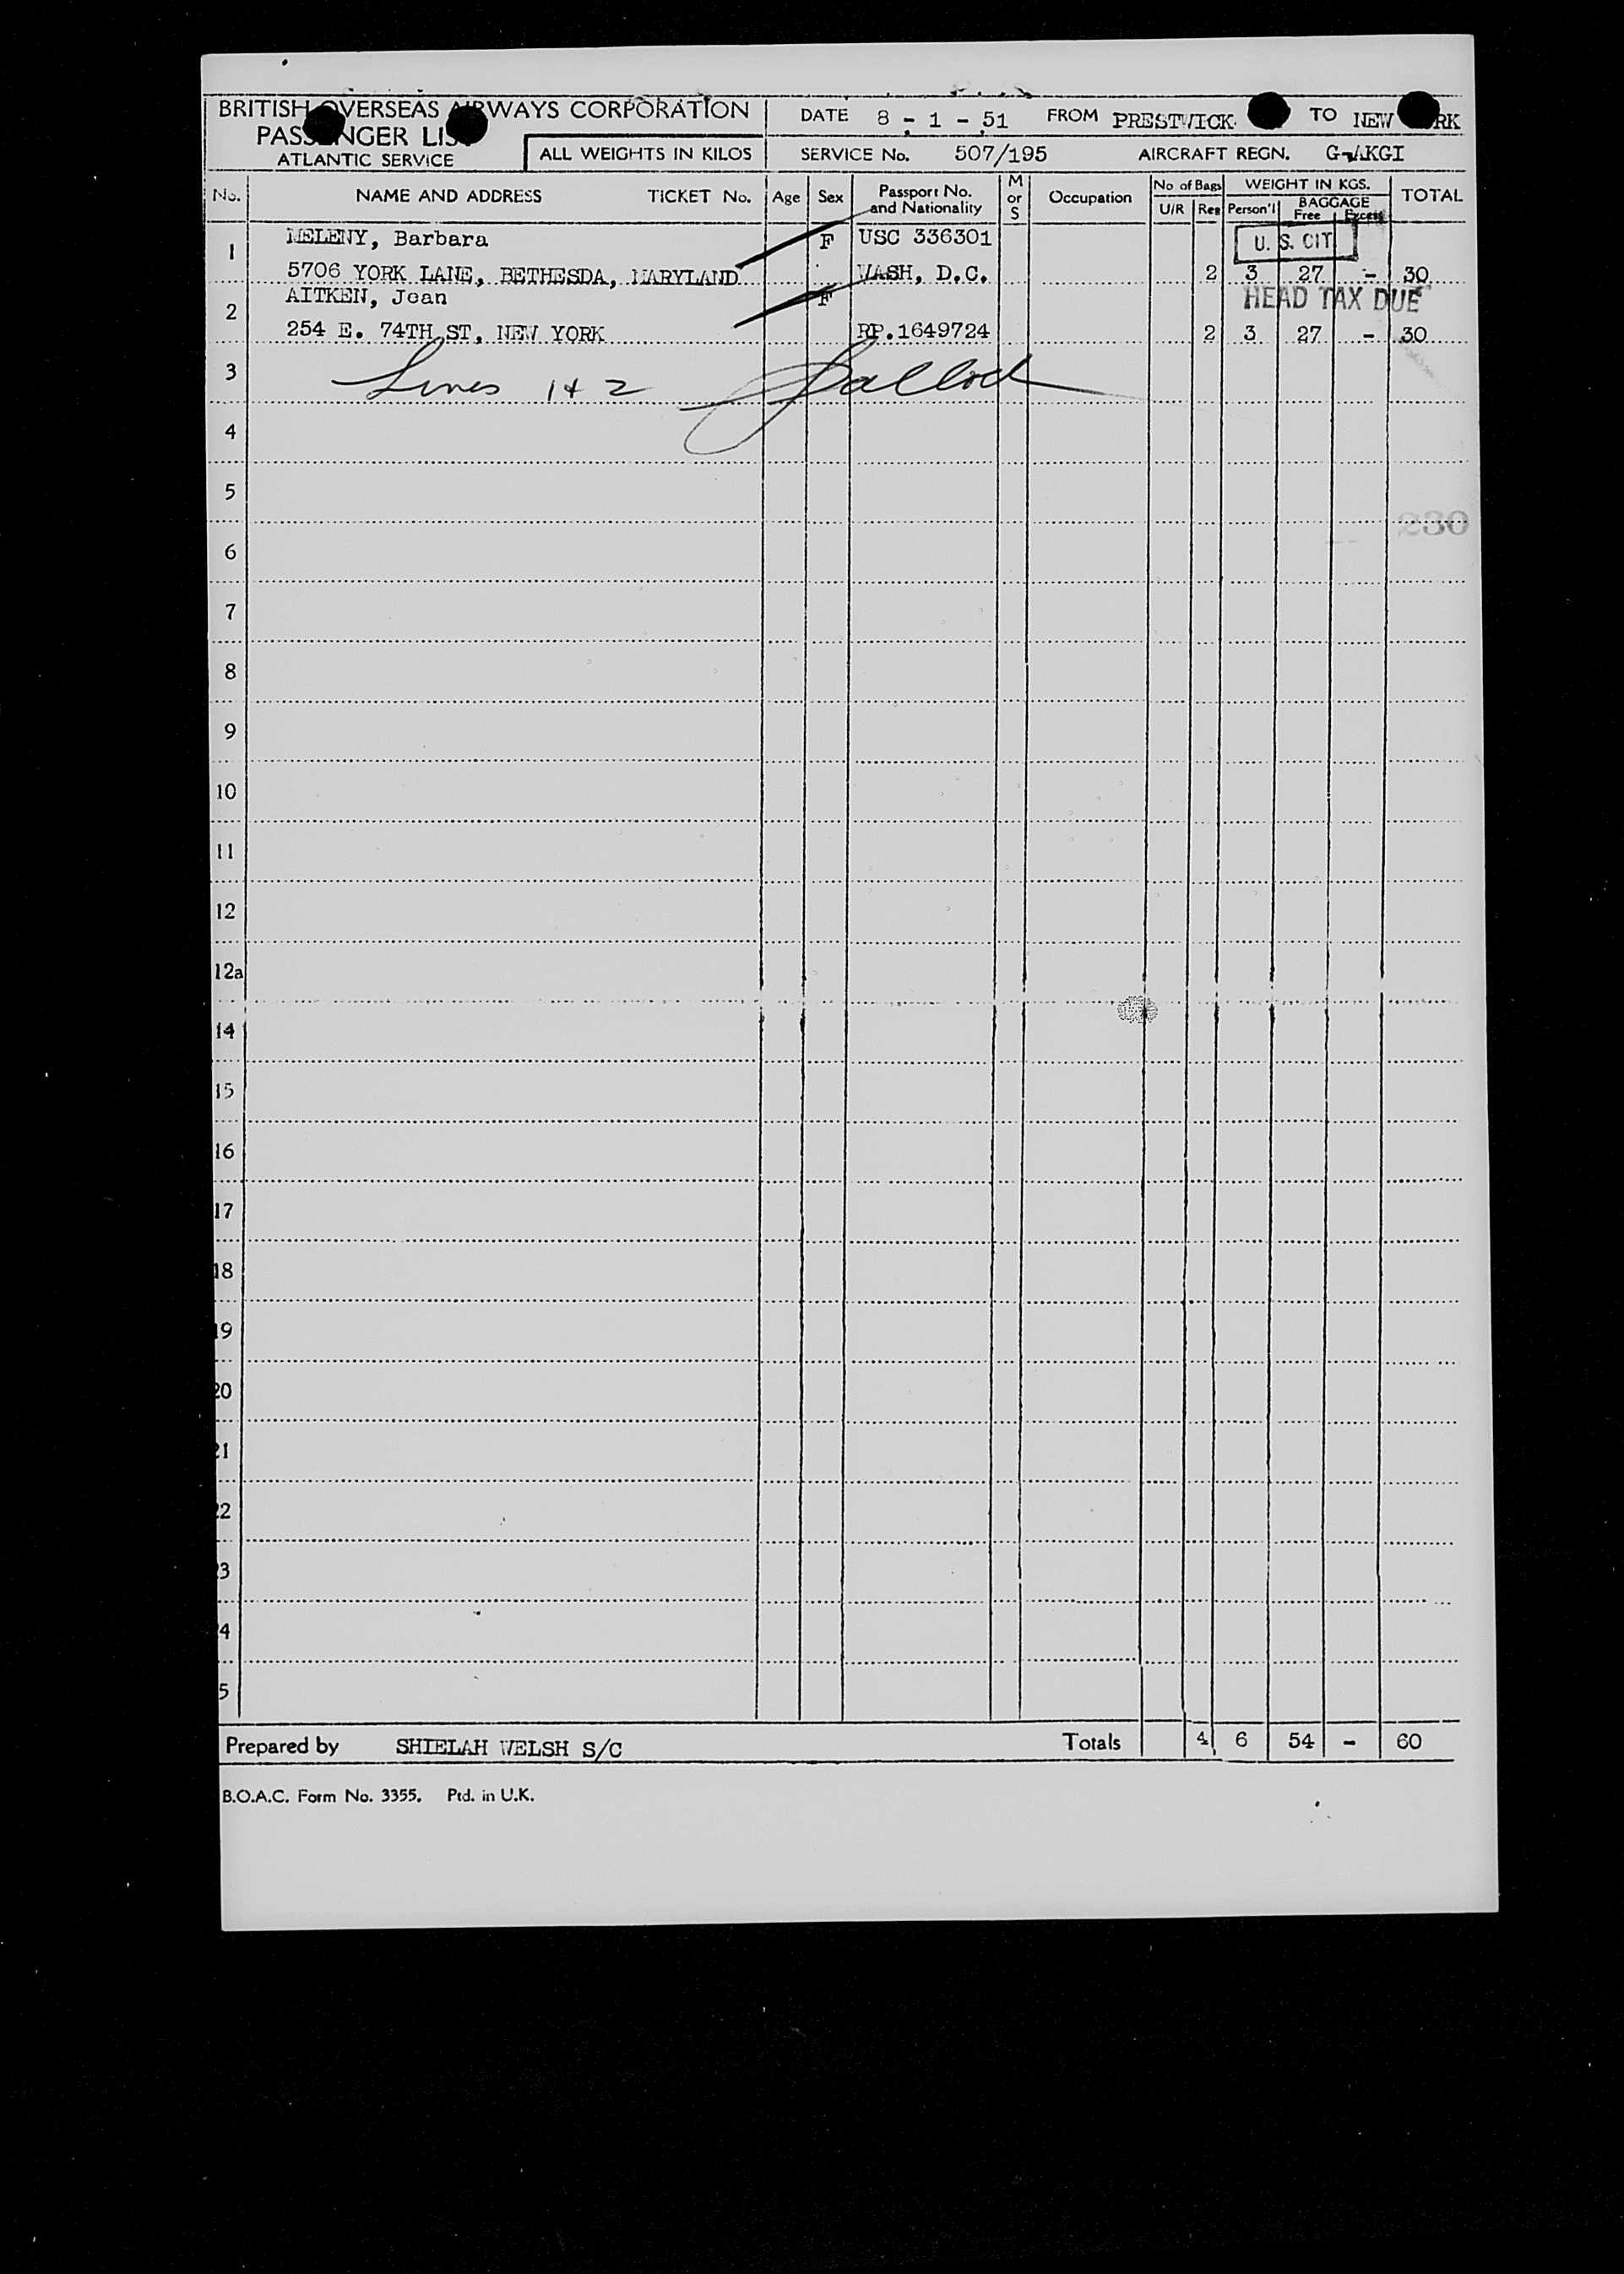 BRITISH OVERSEAS AIRWAYS CORPORATION
PASSENGER LIST
ATLANTIC SERVICE
ALL WEIGHTS IN KILOS
DATE 8 - 1 - 51 FROM PRESTWICK TO NEW YORK
SERVICE No. 507/195 AIRCRAFT REGN. G-AKGI
No. NAME AND ADDRESS TICKET No. Age Sex Passport No. and Nationality M or S Occupation No of Bags U/R Reg WEIGHT IN KGS. Person'l BAGGAGE Free Excess TOTAL
1 MELENY, Barbara F USC 336301 U. S. CIT
5706 YORK LANE, BETHESDA, MARYLAND WASH, D.C. 2 3 27 - 30
HEAD TAX DUE
2 AITKEN, Jean F
254 E. 74TH ST, NEW YORK RP.1649724 2 3 27 - 30
3 Lines 1 + 2
4
5
230
6
7
8
9
10
11
12
12a
14
15
16
17
18
19
20
21
22
3
4
5
Prepared by SHIELAH WELSH S/C Totals 4 6 54 - 60
B.O.A.C. Form No. 3355. Ptd. in U.K.